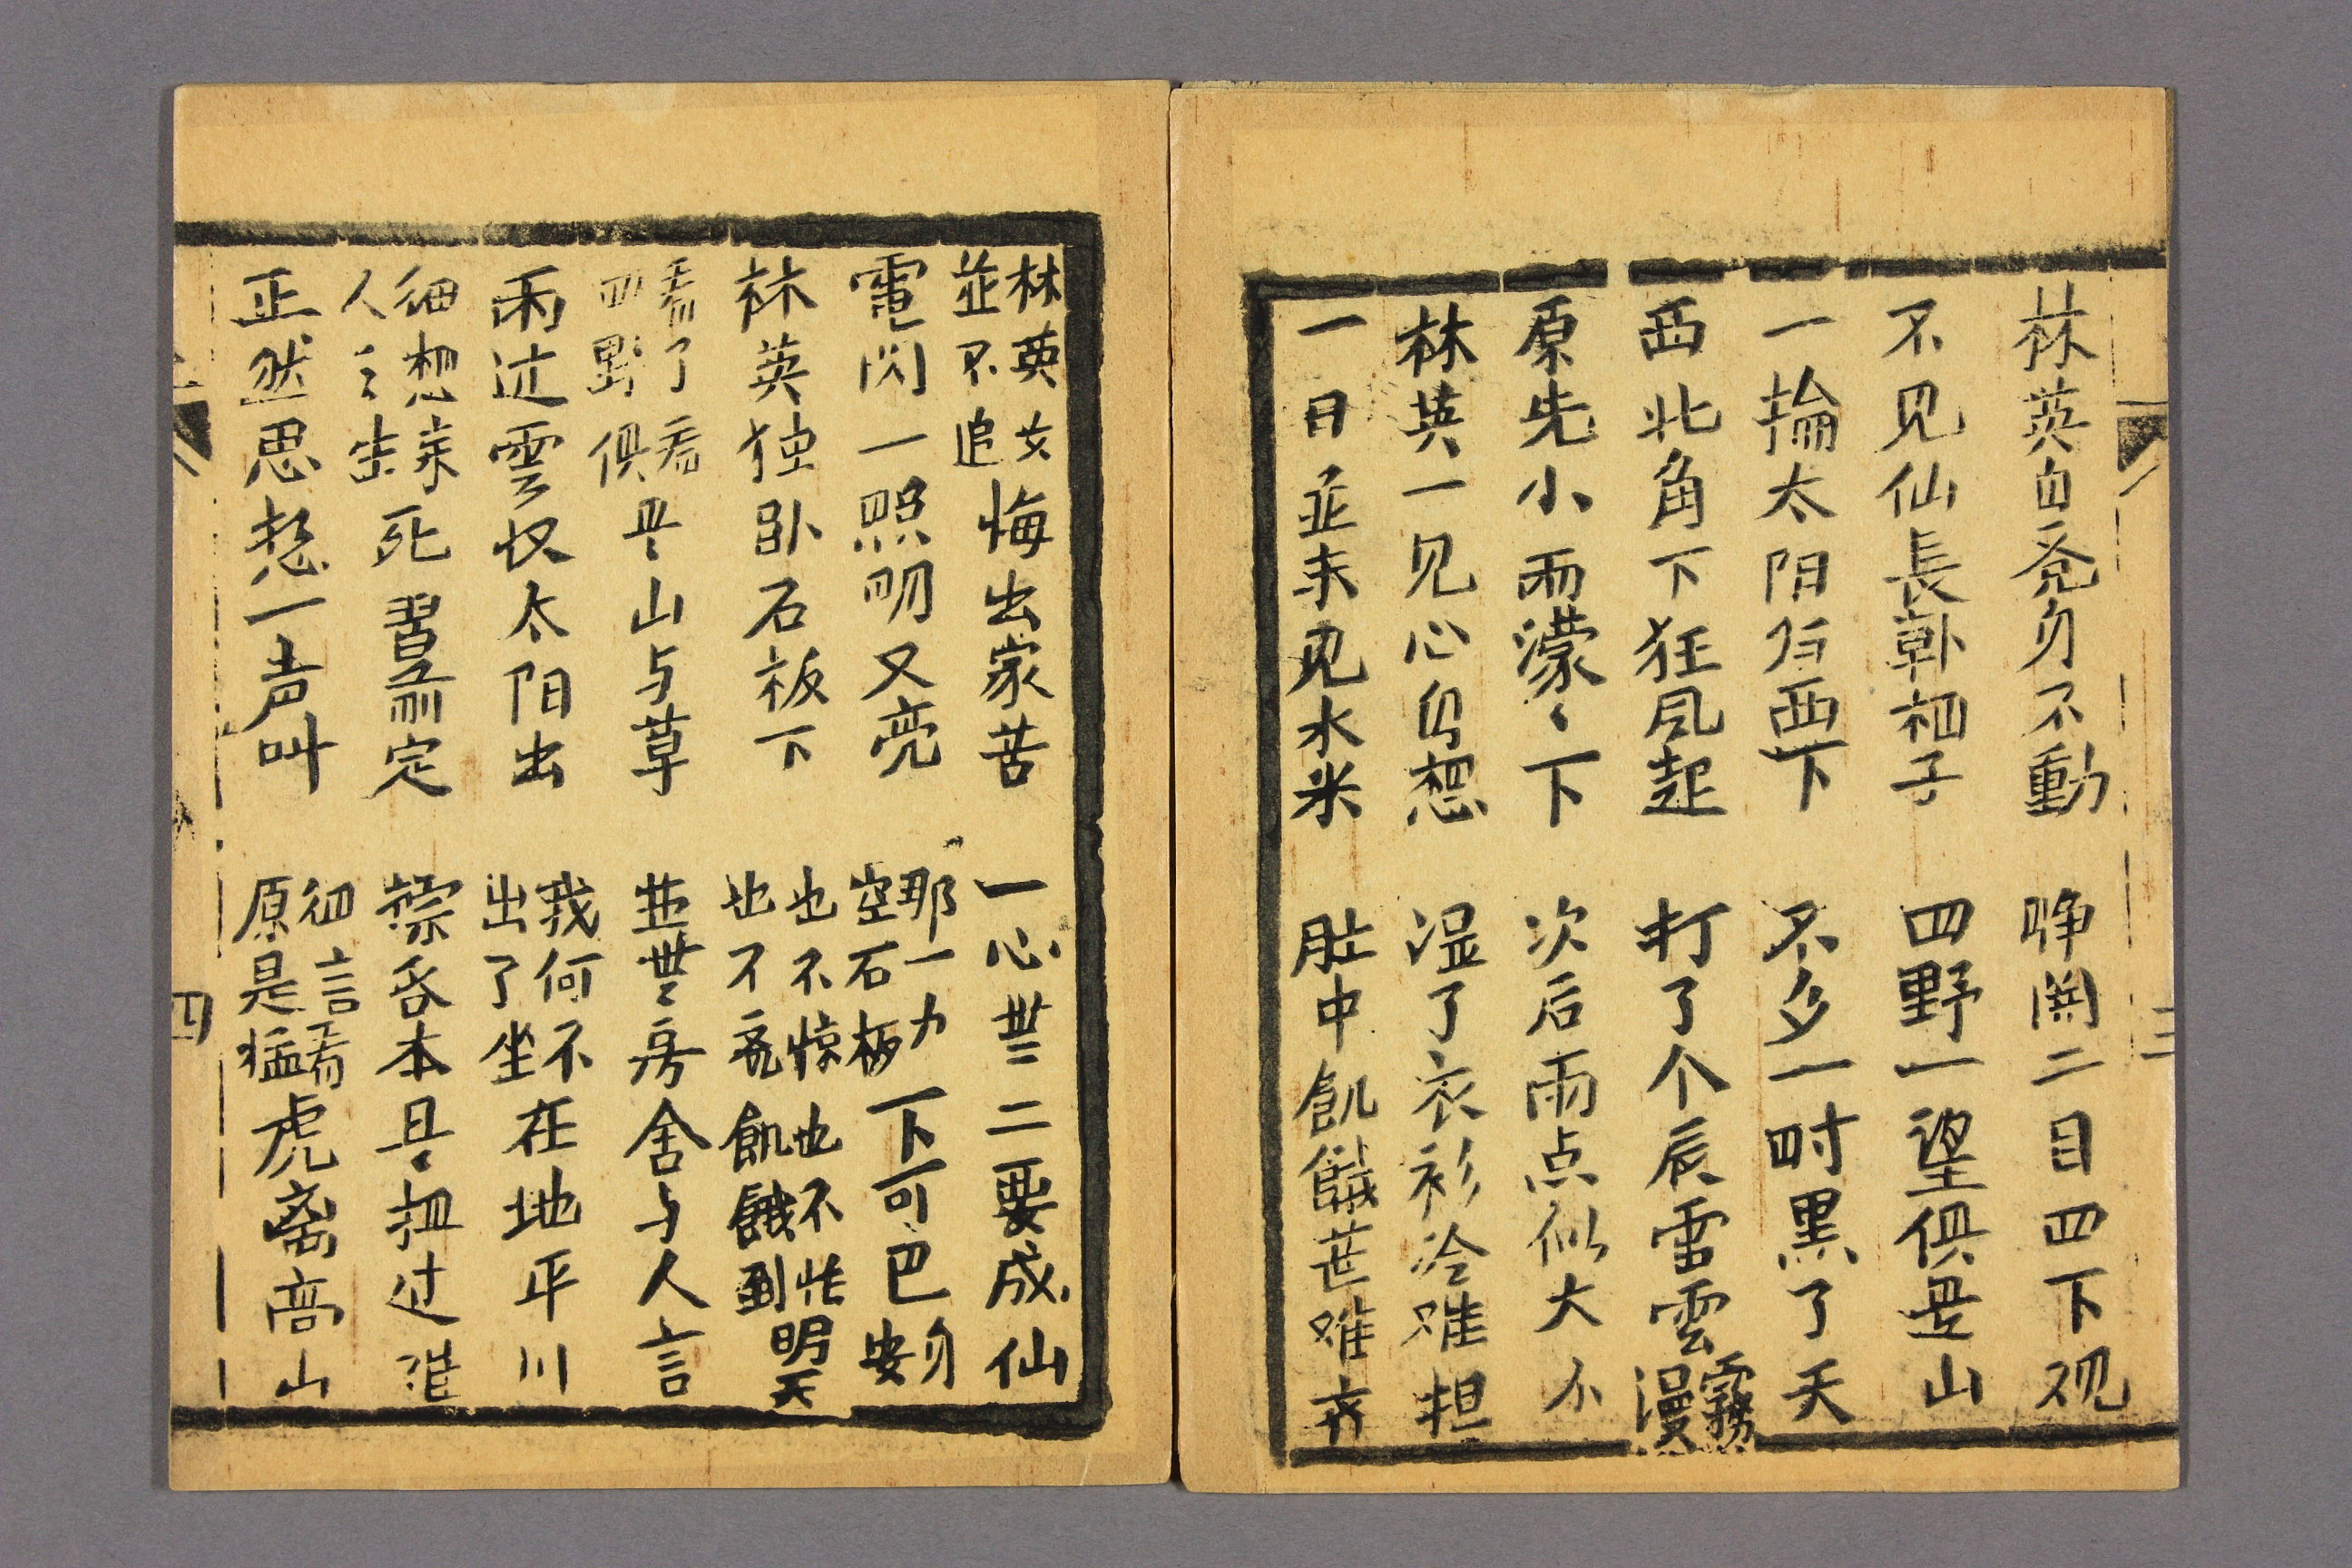 林英自觉身不動　睁開二目四下视
不见仙長韩湘子　四野一望俱是山
一輪太阳归西下　不多一時黑了天
西北角下狂风起　打了个辰雷雲霧漫
原先小雨濛〻下　次后雨点似大小
林英一见心自想　湿了衣衫冷难担
一日並未见水米　肚中飢餓
三
林英女並不追悔出家苦　一心無二要成仙
電闪一照明又亮　那一力空石板下可
林英独卧石板下　也不惊也不忙也不飢餓到明天
看了看四野俱是山与草　並無房舍与人言
雨过雲收太阳出　我何不出了坐在地平川
细想来人〻生死定　本是
正然思想一声叫　细言看原是猛虎离高山
四